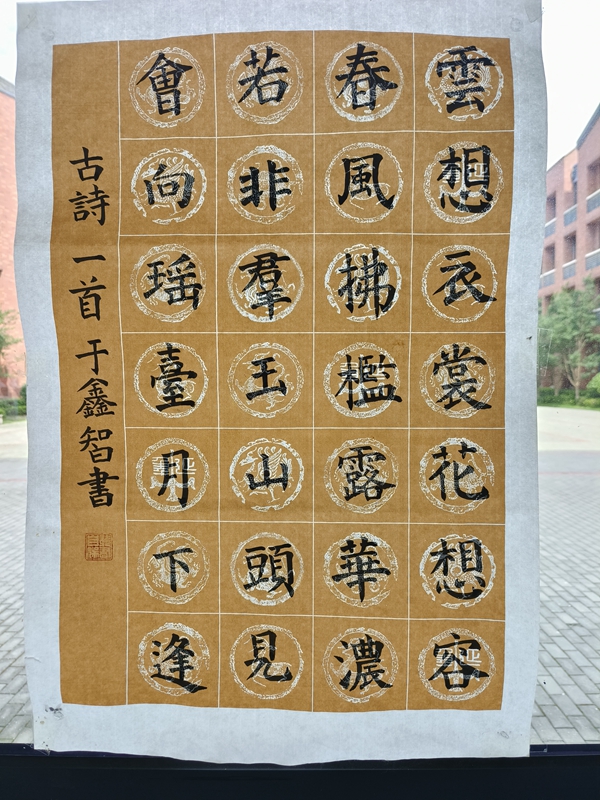 雲想衣裳花想容
春風拂檻露華濃
若非羣玉山頭見
會向瑶臺月下逢
古詩一首于鑫智書